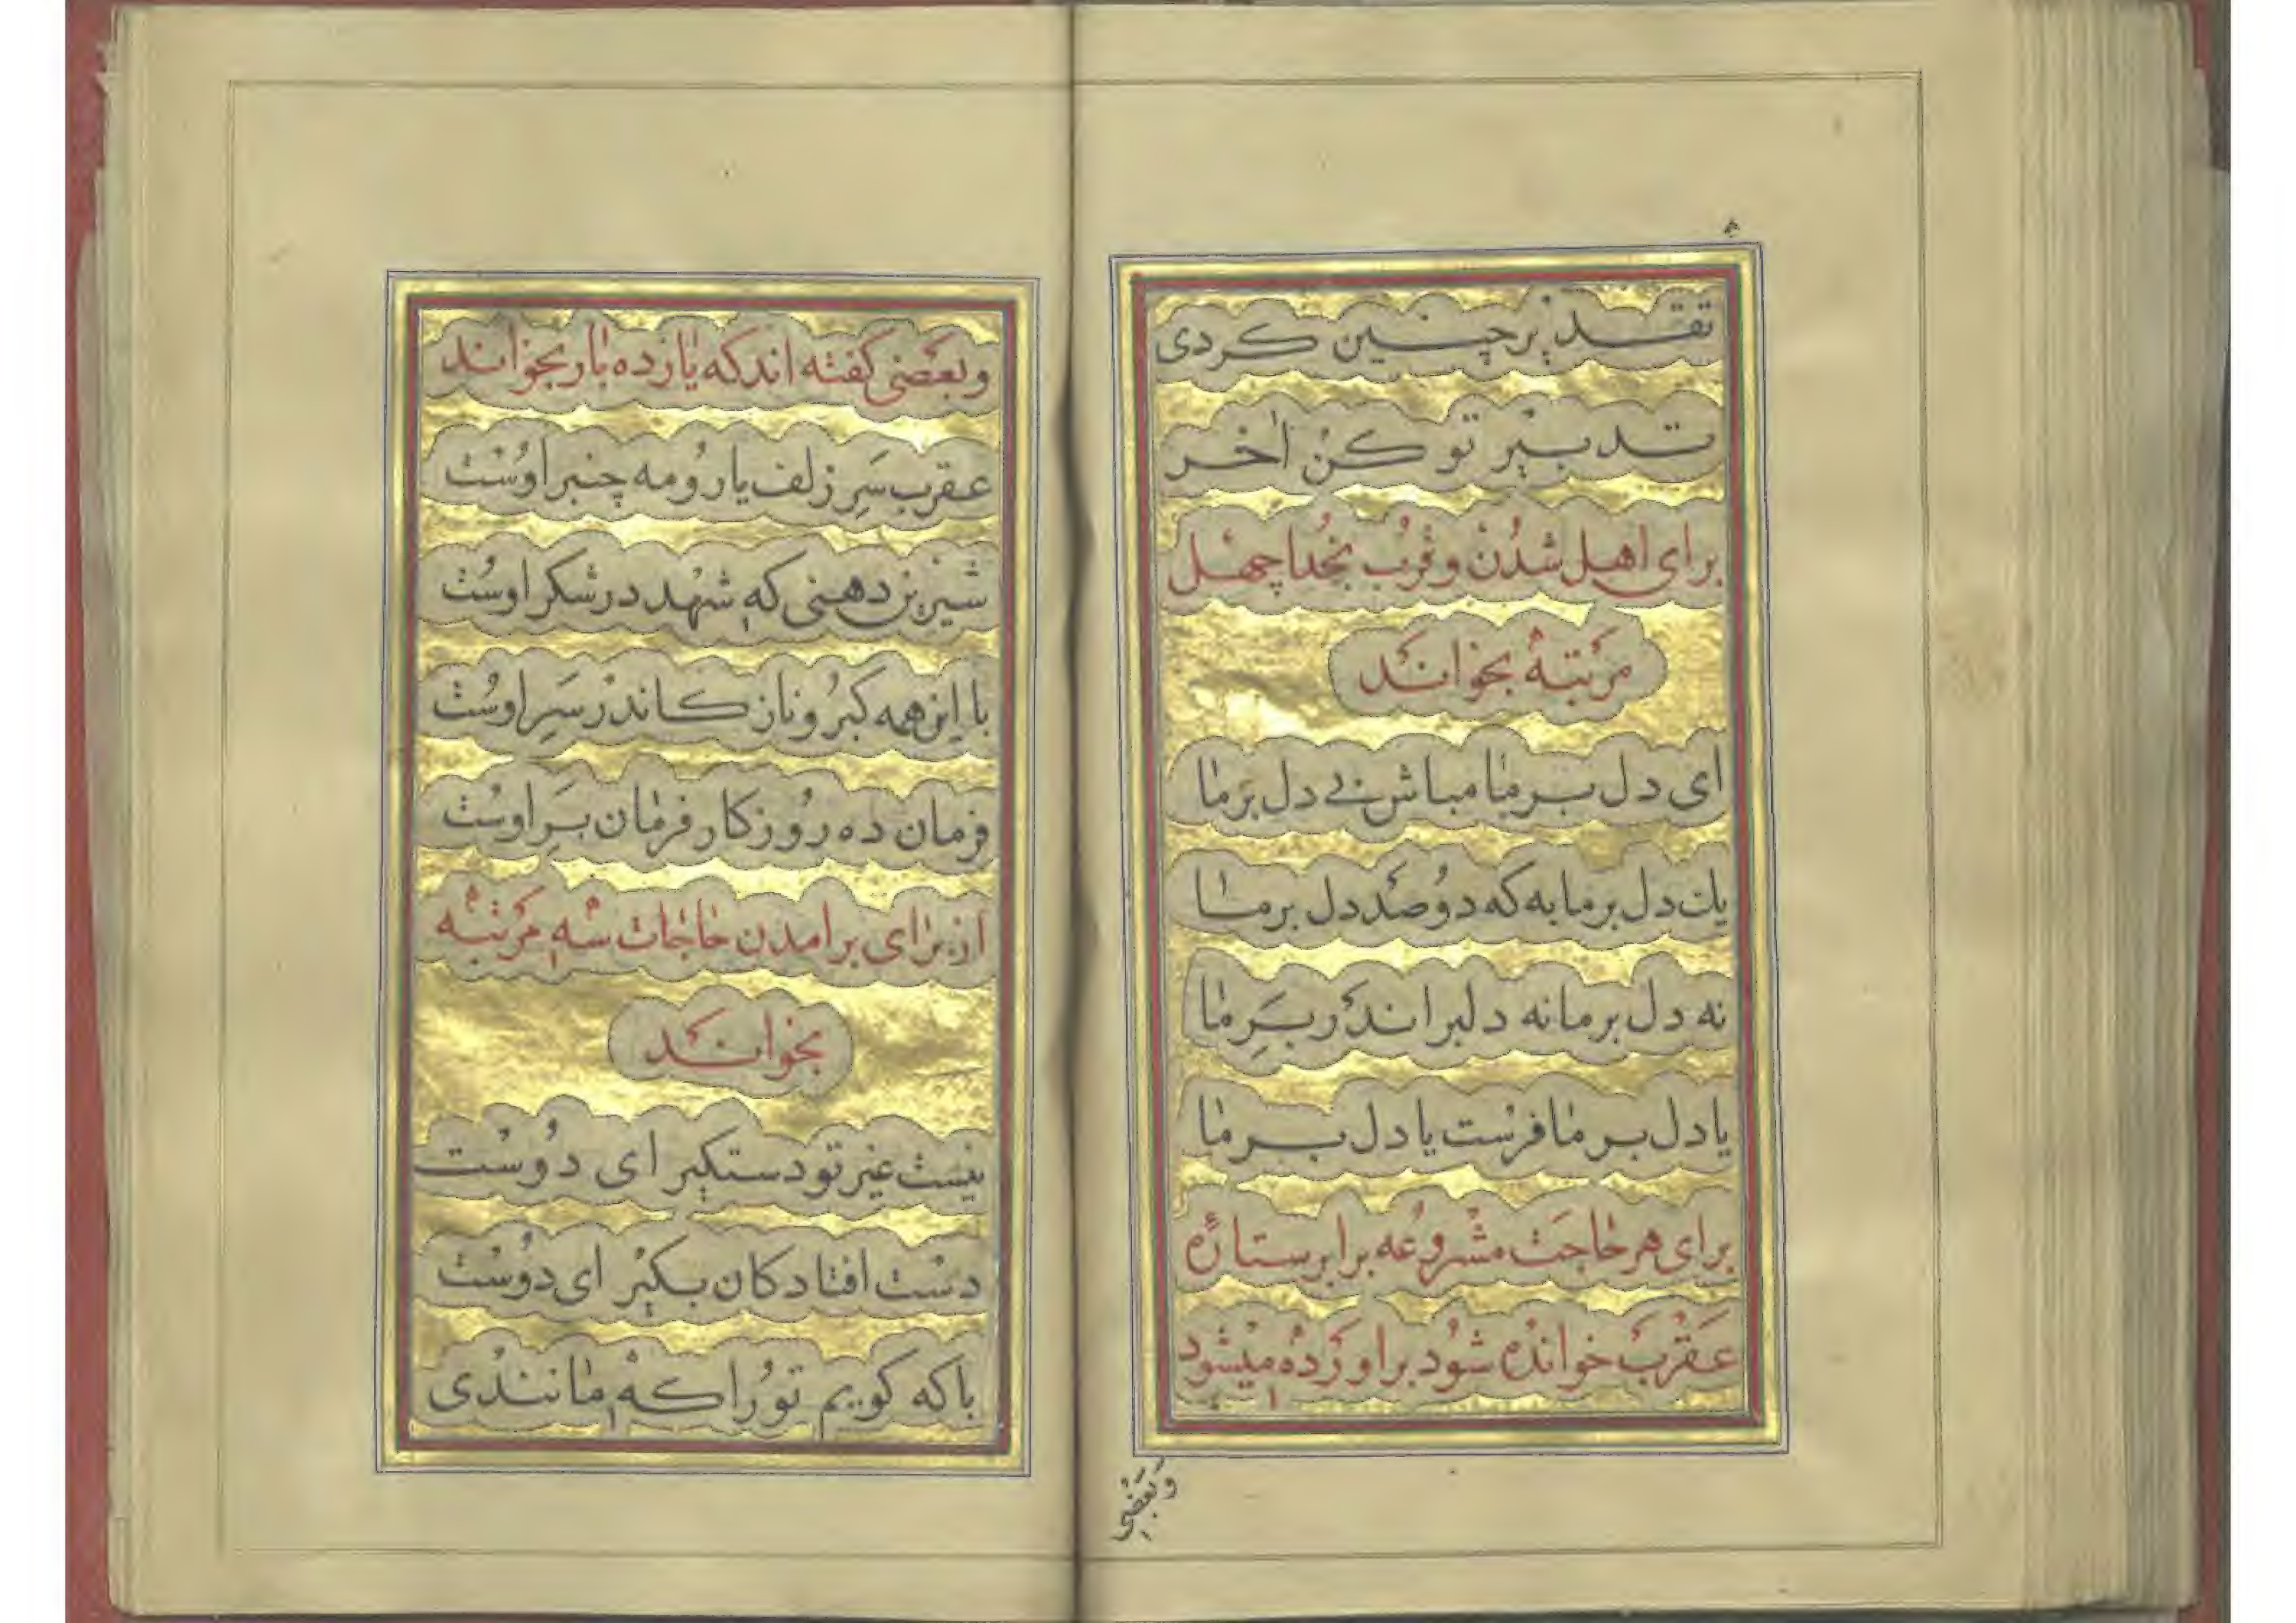 تقدیر چنین کردی
تدبیر تو کن اخر
برای اهل شدن و قرب بخدا چهل
مرتبه بخواند
ای دل بر ما مباش بی دل بر ما
یك دل بر ما به که دو صد دل بر ما
نه دل بر ما نه دلبر اندر بر ما
یا دل بر ما فرست یا دل بر ما
برای هر حاجت مشروعه برابر ستاره
عقرب خوانده شود براورده میشود
وبعضی
وبعضی کفته اند که یازده بار بخواند
عقرب سر زلف یار و مه چنبر اوست
شیرین دهنی که شهد در شکر اوست
با این همه کبر و ناز کاندر سر اوست
فرمان ده روزکار فرمان بر اوست
از برای برامدن حاجات سه مرتبه
بخواند
نیست غیر تو دستکیر ای دوست
دست افتادکان بکیر ای دوست
با که کویم تو را که مانندی